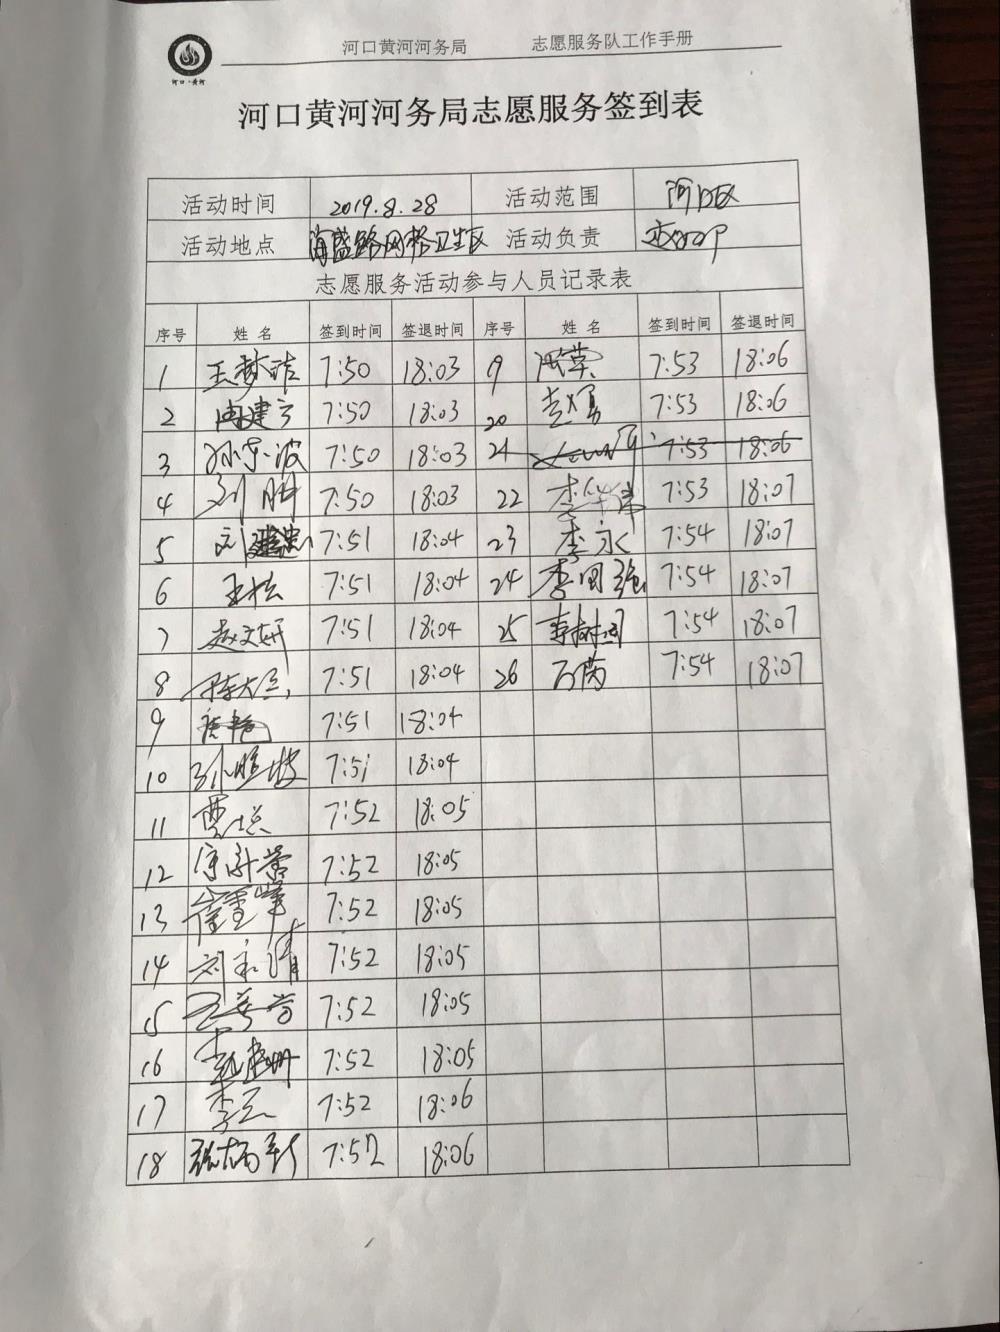 河口黄河河务局 志愿服务队工作手册
河口·黄河
河口黄河河务局志愿服务签到表
活动时间 2019.8.28 活动范围 河口区
活动地点 海盛路网格卫生区 活动负责
志愿服务活动参与人员记录表
序号 姓名 签到时间 签退时间 序号 姓名 签到时间 签退时间
1 王梦洁 7:50 18:03 9 7:53 18:06
2 7:50 18:03 20 李勇 7:53 18:06
3 孙东波 7:50 18:03 21 7:53 18:06
4 刘 7:50 18:03 22 李华伟 7:53 18:07
5 刘建忠 7:51 18:04 23 李永 7:54 18:07
6 王松 7:51 18:04 24 李国强 7:54 18:07
7 赵文妍 7:51 18:04 25 李树国 7:54 18:07
8 7:51 18:04 26 万茵 7:54 18:07
9 7:51 18:04
10 孙晓 7:51 18:04
11 7:52 18:05
12 7:52 18:05
13 崔重华 7:52 18:05
14 刘永清 7:52 18:05
15 王 7:52 18:05
16 7:52 18:05
17 李云 7:52 18:06
18 张炳 7:52 18:06